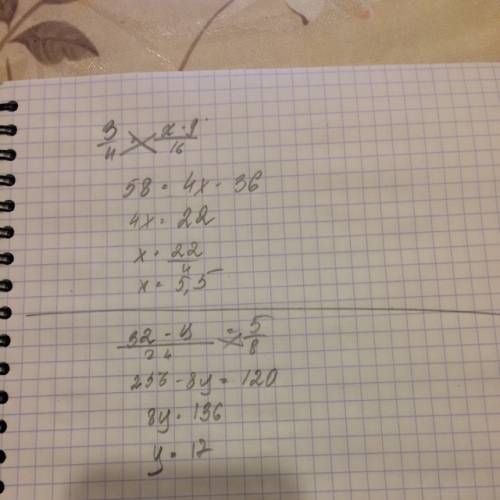 3/4 = x - 9/16
58 = 4x - 36
4x = 22
x = 22/4
x = 5,5
32 - y/24 = 5/8
256 - 8y = 120
8y = 136
y = 17